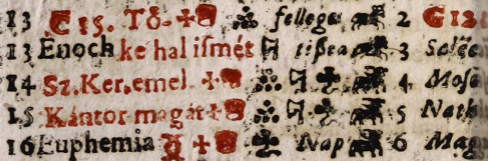 13 C 15. Tö. fellege 2 C 12
13 Enoch ke hal iſmét tiſzta 3
14 Sz. Ker. emel 4 Moſ
15 Kántor magát 5 Nath
16 Euphemia Nap 6 Mag